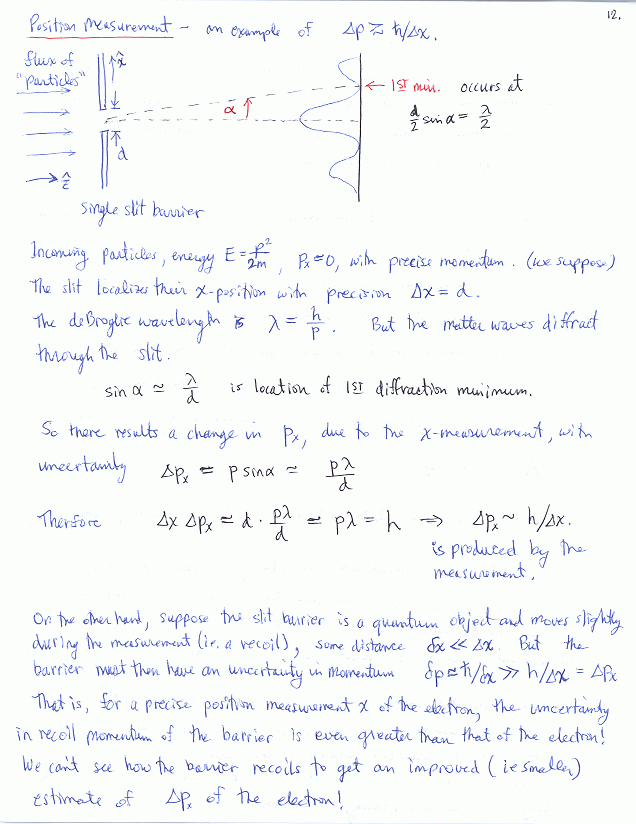 12.
Position Measurement – an example of Δp ≳ ħ/Δx.
flux of
"particles"
x̂
α
d
ẑ
← 1ST min. occurs at
d/2 sin α = λ/2
single slit barrier
Incoming particles, energy E = p²/2m, Pₓ ≈ 0, with precise momentum. (we suppose)
The slit localizes their x-position with precision Δx = d.
The deBroglie wavelength is λ = h/p. But the matter waves diffract
through the slit.
sin α ≃ λ/d is location of 1ST diffraction minimum.
So there results a change in Pₓ, due to the x-measurement, with
uncertainty ΔPₓ ≃ p sin α ≃ pλ/d
Therfore Δx ΔPₓ ≃ d · pλ/d ≃ pλ = h ⇒ ΔPₓ ~ h/Δx.
is produced by the
measurement.
On the other hand, suppose the slit barrier is a quantum object and moves slightly
during the measurement (ie. a recoil), some distance δx ≪ Δx. But the
barrier must then have an uncertainty in momentum δp ≃ ħ/δx ≫ h/Δx = ΔPₓ
That is, for a precise position measurement x of the electron, the uncertainty
in recoil momentum of the barrier is even greater than that of the electron!
We can't see how the barrier recoils to get an improved (ie smaller)
estimate of ΔPₓ of the electron!